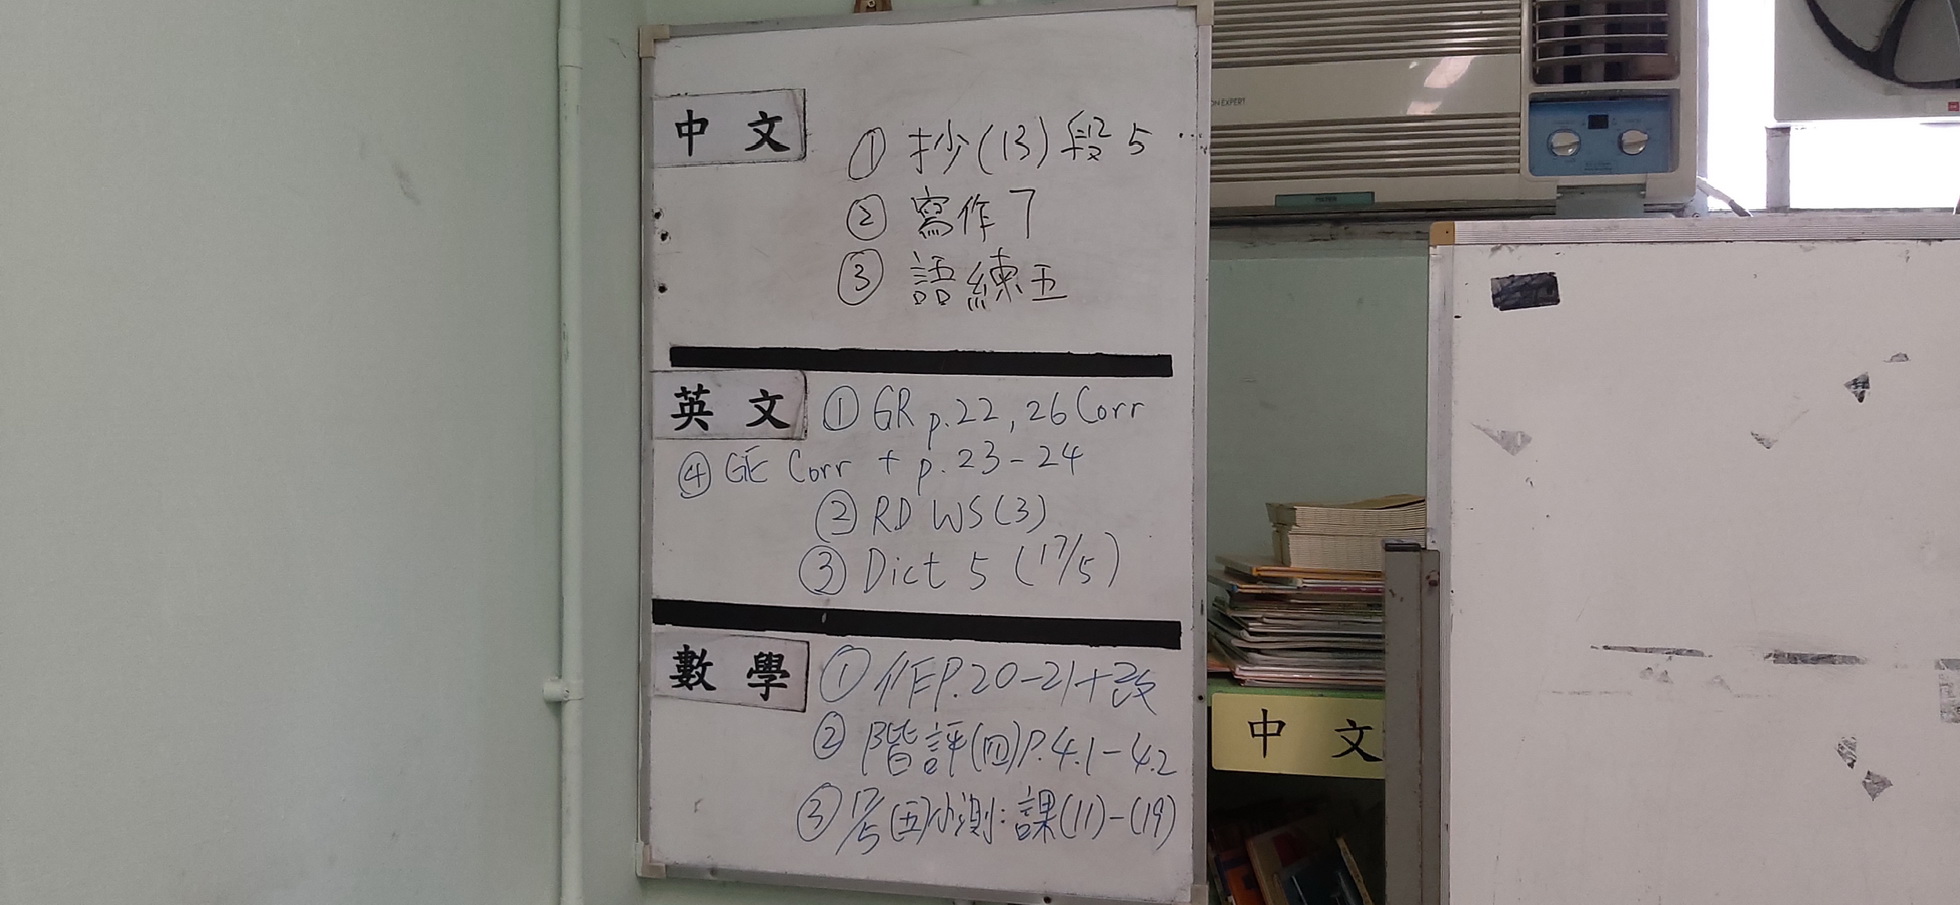 中文
① 抄(13)段5
② 寫作7
③ 語練五
英文 ① GR p.22, 26 Corr
④ GE Corr + p.23-24
② RD WS(3)
③ Dict 5 (17/5)
數學 ① 作P.20-21+改
② 階評(四)P.4.1-4.2
③ 17/5(五)小測:課(11)-(19)
中文